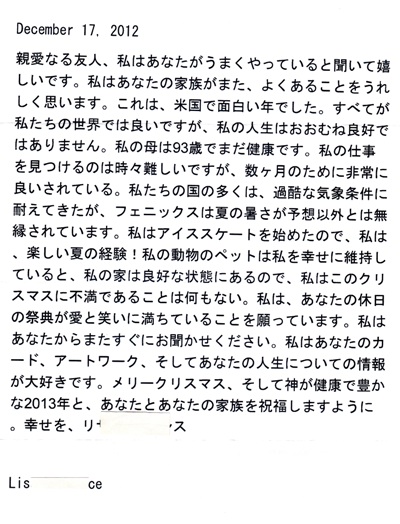 December 17, 2012
親愛なる友人、私はあなたがうまくやっていると聞いて嬉
しいです。私はあなたの家族がまた、よくあることをうれ
しく思います。これは、米国で面白い年でした。すべてが
私たちの世界では良いですが、私の人生はおおむね良好で
はありません。私の母は93歳でまだ健康です。私の仕事
を見つけるのは時々難しいですが、数ヶ月のために非常に
良いされている。私たちの国の多くは、過酷な気象条件に
耐えてきたが、フェニックスは夏の暑さが予想以外とは無
縁されています。私はアイススケートを始めたので、私は
、楽しい夏の経験！私の動物のペットは私を幸せに維持し
ていると、私の家は良好な状態にあるので、私はこのクリ
スマスに不満であることは何もない。私は、あなたの休日
の祭典が愛と笑いに満ちていることを願っています。私は
あなたからまたすぐにお聞かせください。私はあなたのカ
ード、アートワーク、そしてあなたの人生についての情報
が大好きです。メリークリスマス、そして神が健康で豊か
な2013年と、あなたとあなたの家族を祝福しますように
。幸せを、リ ス
Lis ce